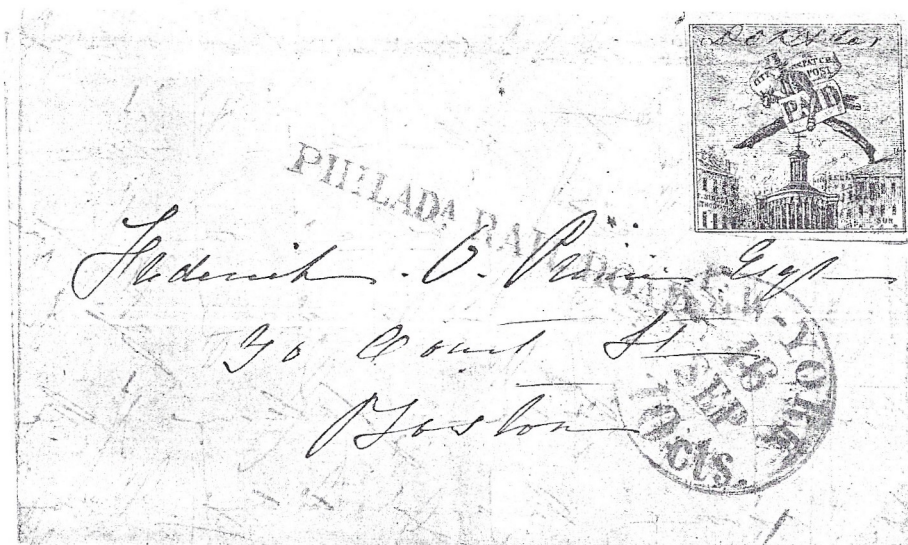 CITY DESPATCH
POST
PAID
SUN
PHILADA RAILROAD
Frederick . O. Prince Esqr
30 Court St
Boston
NEW-YORK
16
SEP
10 cts.